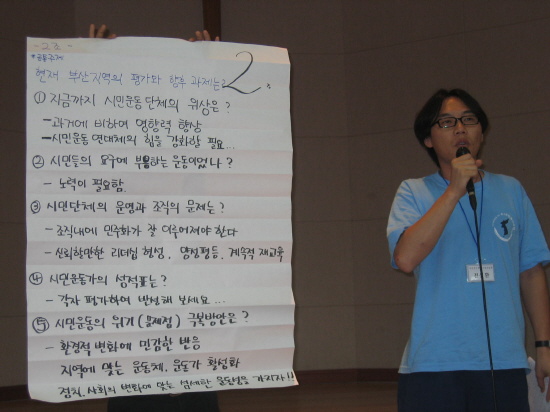 - 2조 -
2.
*공동주제
현재 부산지역의 평가와 향후 과제는?
① 지금까지 시민운동 단체의 위상은?
- 과거에 비하여 영향력 향상
- 시민운동 연대체의 힘을 강화할 필요...
② 시민들의 욕구에 부응하는 운동이었나?
- 노력이 필요함.
③ 시민단체의 운영과 조직의 문제는?
- 조직내에 민주화가 잘 이루어져야 한다
- 신뢰할만한 리더쉽 형성, 양성평등, 계속적 재교육
④ 시민운동가의 성적표는?
- 각자 평가하여 반성해 보세요...
⑤ 시민운동의 위기(문제점) 극복방안은?
- 환경적 변화에 민감한 반응
지역에 맞는 운동체, 운동가 활성화
정치, 사회의 변화에 맞는 섬세한 운동성을 가지자!!